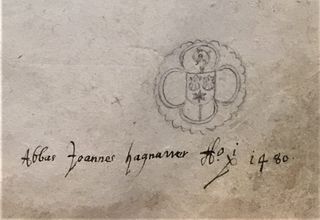 Abbas Joannes hagnawer Ao. xi 1480